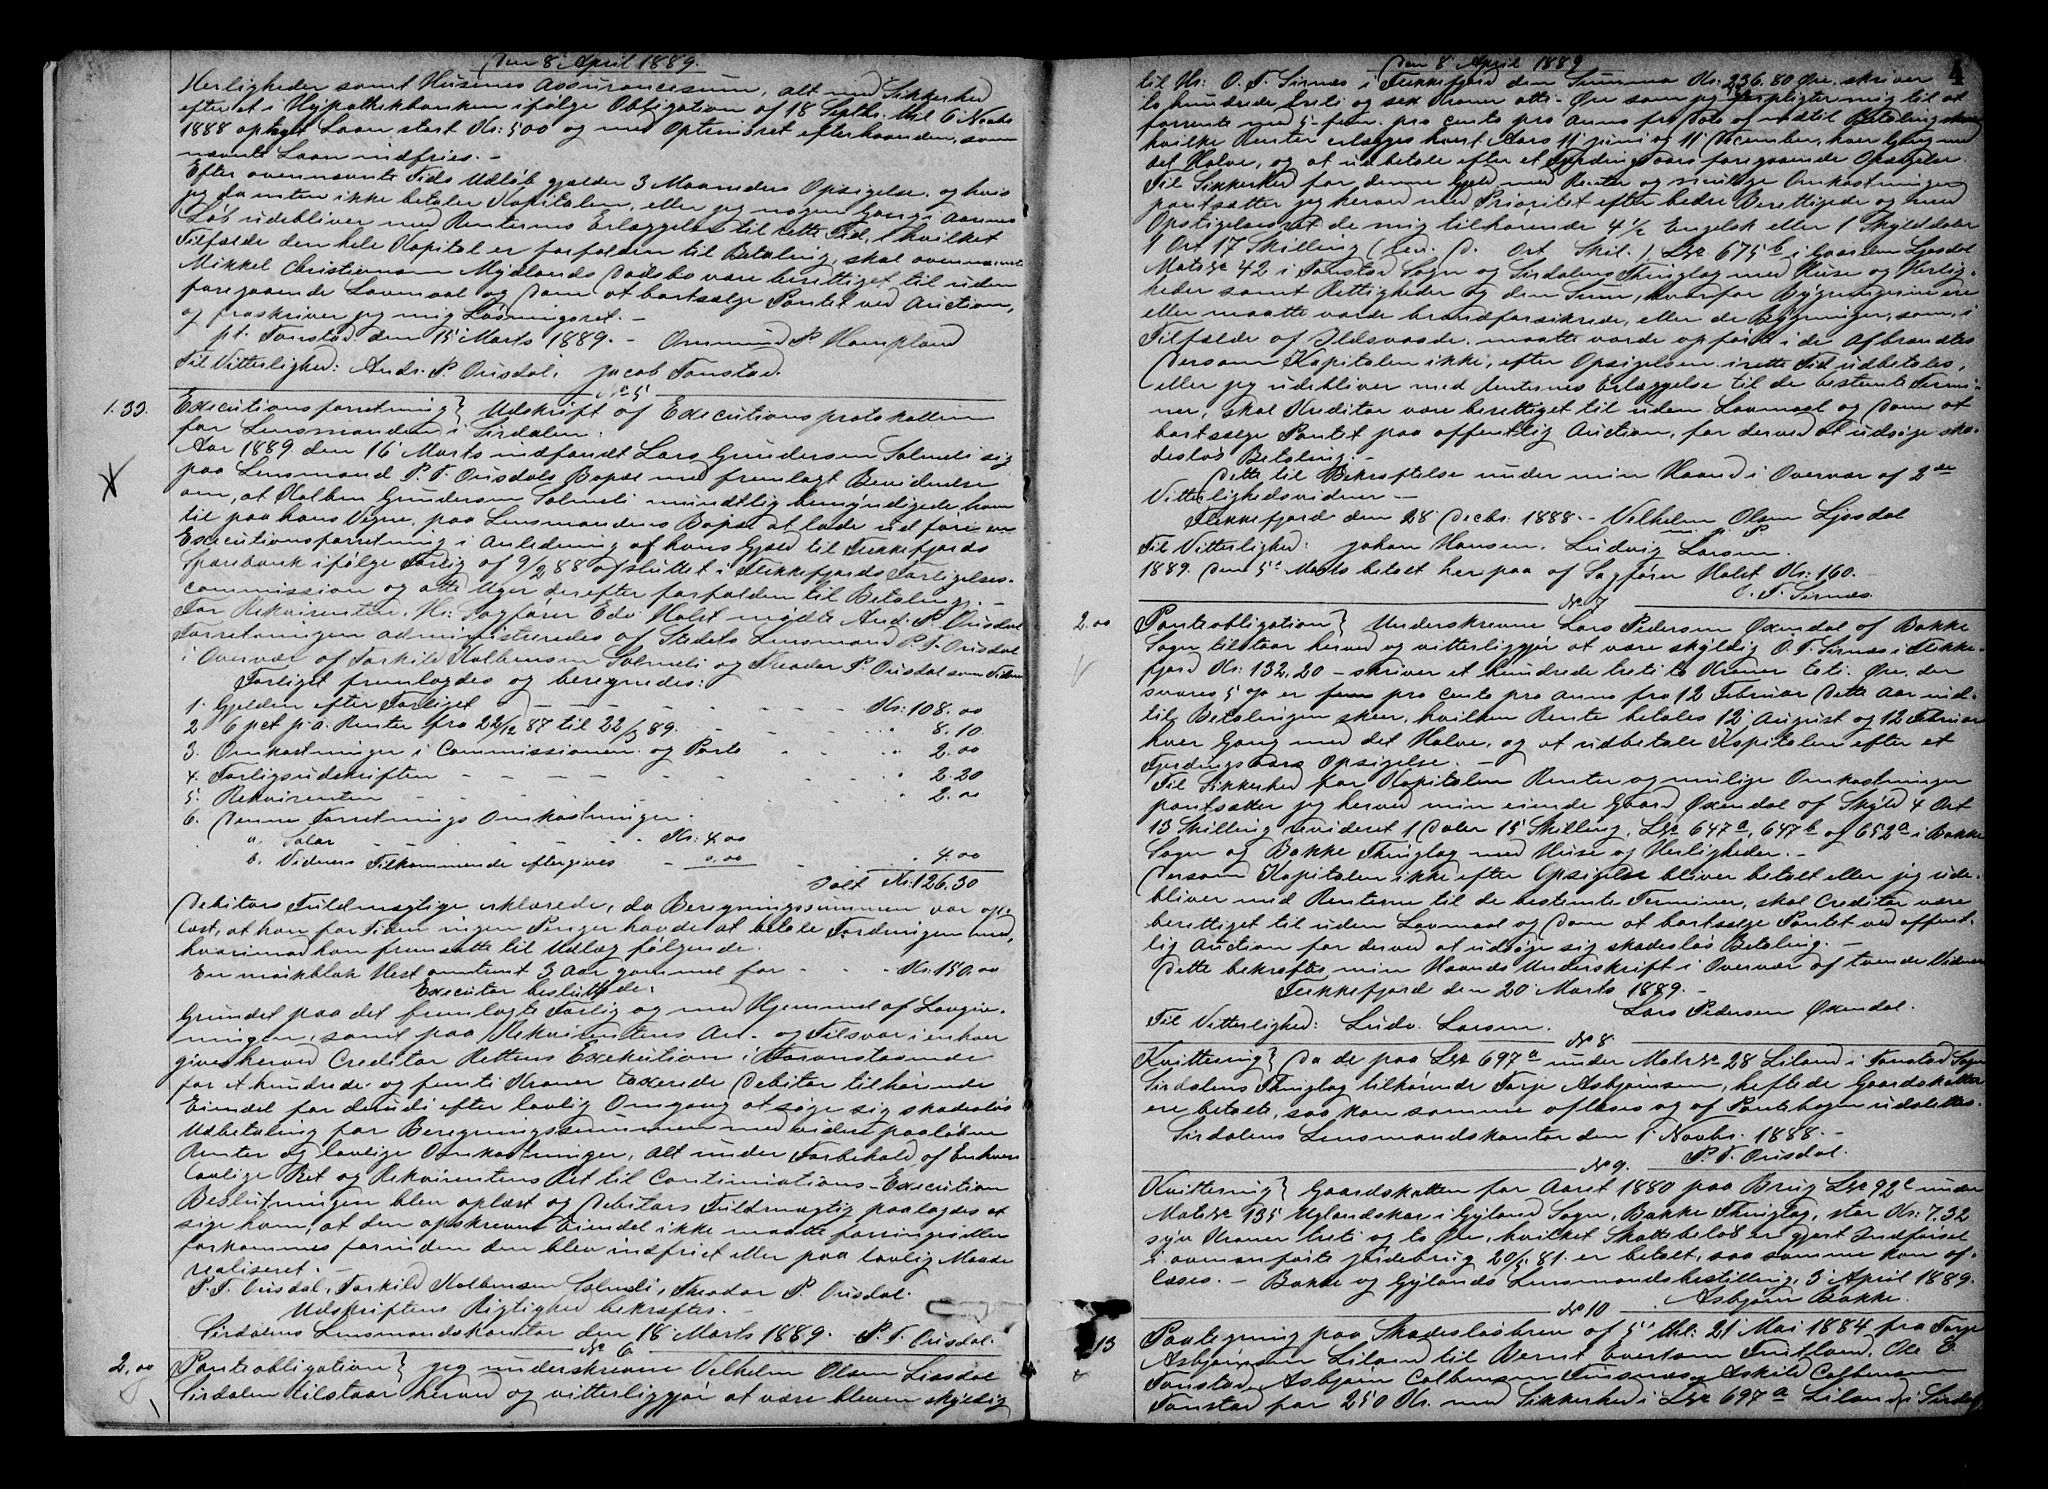 Den 8 April 1889.
Herligheder samt Husenes Assurancesum, alt med Sikkerhed
efter et i Hypothekbanken ifølge Obligation af 18 Septbr. thl. 6 Novbr
1888 optaget Laan stort Kr: 500 og med Optrinsret efterhaanden, som
nævnte Laan indfries. -
Efter ovennævnte Tids Udløb gjælder 3 Maaneders Opsigelse, og hvis
jeg da enten ikke betaler Kapitalen, eller jeg nogen Gang i Aarenes
Løb udebliver med Renternes Erlæggelse til rette Tid, i hvilket
Tilfælde den hele Kapital er forfalden til Betaling, skal ovennævnte
Mikkel Christiensen Mydlands Dødsbo være berettiget til uden
foregaaende Lovmaal og Dom at bortsælge Pantet ved Auction,
og fraskriver jeg mig Løsningsret. -
pt. Tonstad den 15 Marts 1889. - Ommund P. Hampland
Til Vitterlighed: Andr. P. Ousdal. Jacob Tonstad.
No 5
1.30. Executionsforretning } Udskrift af Executionsprotokollen
for Lensmanden i Sirdalen:
Aar 1889 den 16 Marts indfandt Lars Gundersen Salmeli sig
paa Lensmand P. T. Ousdals Bopæl med fremlagt Bevidnelse
om, at Kolben Gundersen Salmeli mundtlig bemyndigede ham
til paa hans Vegne, paa Lensmandens Bopæl at lade udføre en
Executionsforretning i Anledning af hans Gjæld til Flekkefjords
Sparebank ifølge Forlig af 9/2 88 afsluttet i Flekkefjords Forligelses-
commission og otte Uger derefter forfalden til Betaling. -
For Rekvirenten, Hr: Sagfører Edv. Holst mødte And. P. Ousdal
Forretningen administreredes af Stedets Lensmand P. T. Ousdal
i Overvær af Torkild Kolbensen Salmeli og Theodor P. Ousdal som Vidner
Forliget fremlagdes og beregnedes:
1. Gjelden efter Forliget - Kr: 108.00
2 6 pct p. a. Renter fra 22/12 87 til 22/3 89. 8.10
3. Omkostninger i Commissionen og Porto 2.00
4. Forligsudskriften 2.20
5. Rekvirenten 2.00
6. Denne Forretnings Omkostninger:
a. Salær Kr: 4.00
b. Vidners Tilkommende eftergives 0.00 4.00
Ialt Kr: 126.30
Debitors Fuldmægtige erklærede, da Beregningssummen var op-
læst, at han for Tiden ingen Penger havde at betale Fordringen med,
hvorimod han fremsatte til Udlæg følgende:
En mørkblak Hest omtrent 3 Aar gammel for Kr: 150.00
Executor besluttede:
Grundet paa det fremlagte Forlig og med Hjemmel af Lovgiv-
ningen, samt paa Rekvirentens An- og Tilsvar i enhver
gives herved Creditor Rettens Exekution i Foranstaaende
for et hundrede og femti Kroner taxerede Debitor tilhørende
Eiendel for derudi efter lovlig Omgang at søge sig skadesløs
Udbetaling for Beregningssummen med videre paaløbne
Renter og lovlige Omkostninger, Alt under Forbehold af Enhvers
lovlige Ret og Rekvirentens Ret til Continuations-Execution
Beslutningen blev oplæst og Debitors Fuldmægtig paalagdes at
sige ham, at den opskrevne Eiendel ikke maatte forringes eller
forkommes forinden den blev indfriet eller paa lovlig Maade
realiseret. -
P. T. Ousdal, Torkild Kolbensen Salmeli, Theodor P. Ousdal.
Udskriftens Rigtighed bekræftes. -
Sirdalens Lensmandskontor den 18 Marts 1889. P. T. Ousdal.
No 6
2.00 Panteobligation } Jeg underskrevne Velhelm Olsen Liosdal
Sirdalen tilstaar herved og vitterliggjør at være bleven skyldig
Den 8 April 1889
4
til Hr: O. F. Sirnæs i Flekkefjord den Summa Kr: 236.80 Øre, skriver
to hundrede treti og sex Kroner otti Øre som jeg forpligter mig til at
forrente med 5 fem pro cento pro Anno fra Dato og indtil Betaling sker
hvilke Renter erlægges hvert Aars 11 juni og 11 December, hver Gang med
det Halve, og at udbetale efter et Fjerdingaars foregaaende Opsigelse.
Til Sikkerhed for denne Gjeld med Renter og mulige Omkostninger
pantsætter jeg herved med Prioritet efter bedre Berettigede og med
Opstigelsesret de mig tilhørende 4 1/2 Engelsk eller 1 Skylddaler
1 Ort 17 Skilling (rev. D. Ort Skil.) Lne 675 b i Gaarden Ljosdal
Matr No 42 i Tonstad Sogn og Sirdalens Thinglag med Huse og Herlig-
heder samt Rettigheder og den Sum, hvorfor Bygningerne ere
eller maatte vorde brandforsikrede, eller de Bygninger, som, i
Tilfælde af Ildsvaade, maatte vorde opførte i de Afbrændtes
Dersom Kapitalen ikke, efter Opsigelsen i rette Tid udbetales,
eller jeg udebliver med Renternes Erlæggelse til de bestemte Termi-
ner, skal Kreditor være berettiget til uden Lovmaal og Dom at
bortsælge Pantet paa offentlig Auction, for derved at udsøge ska-
desløs Betaling. -
Dette til Bekræftelse under min Haand i Overvær af 2de
Vitterlighedsvidner -
Flekkefjord den 28 Decbr. 1888. - Velhelm Olsen Ljosdal
m. p. P.
Til Vitterlighed: Johan Hansen. Ludvig Larsen.
1889. Den 5te Marts betalt herpaa af Sagfører Holst Kr: 160. -
O. F. Sirnæs
No 7
2.00 Panteobligation } Underskrevne Lars Pedersen Øxendal af Bakke
Sogn tilstaar herved og vitterliggjør at være skyldig O. F. Sirnæs i Flekke-
fjord Kr: 132.20 - skriver et hundrede treti to Kroner toti Øre, der
svares 5 o/o er fem pro cento pro anno fra 12 Februar dette Aar ind-
til Betalingen skeer, hvilken Rente betales 12 August og 12 Februar
hver Gang med det Halve, og at udbetale Kapitalen efter et
Fjerdingaars Opsigelse. -
Til Sikkerhed for Kapitalen Renter og mulige Omkostninger
pantsætter jeg herved min eiende Gaard Øxendal af Skyld 4 Ort
13 Skilling revideret 1 Daler 15 Skilling, Lne 647 a, 647 b og 652 a i Bakke
Sogn og Bakke Thinglag med Huse og Herligheder. -
Dersom Kapitalen ikke efter Opsigelse bliver betalt eller jeg ude-
bliver med Renterne til de bestemte Terminer, skal Creditor være
berettiget til uden Lovmaal og Dom at bortsælge Pantet ved offent-
lig Auction for derved at udsøge sig skadesløs Betaling. -
Dette bekræftes min Haands Underskrift i Overvær af tvende Vidner
Flekkefjord den 20 Marts 1889. -
Lars Pedersen Øxendal.
Til Vitterlighed: Ludv. Larsen.
No 8
Kvittering } Da de paa Lne 697 a under Matr No 28 Liland i Tonstad Sogn
Sirdalens Thinglag tilhørende Tarje Asbjørnsen, heftede Gaardskatter
ere betalte, saa kan samme aflæses og af Pantebogen udslettes.
Sirdalens Lensmandskontor den 1 Novbr. 1888. -
P. T. Ousdal.
No 9.
Kvittering } Gaardskatten for Aaret 1880 paa Brug Lne 92 c under
Matr No 135 Uglandskar i Gyland Sogn, Bakke Thinglag, stor Kr: 7.32
syv Kroner treti og to Øre, hvilket Skattebeløb er gjort Indførsel
i ovenanførte Jordebrug 20/5 81. er betalt, saa samme kan af-
læses. - Bakke og Gylands Lensmandsbestilling, 3 April 1889.
Asbjørn Bakke.
No 10
13 Paategning paa Skadesløsbrev af 5 thl: 21 Mai 1884 fra Tarje
Asbjørnsen Liland til Bernt Evertsen Fintland, Ole E.
Tonstad, Asbjørn Colbensen Tonstad, Askild Colbensen
Tonstad for 250 Kr. med Sikkerhed i Lne 697 a Liland i Sirdal